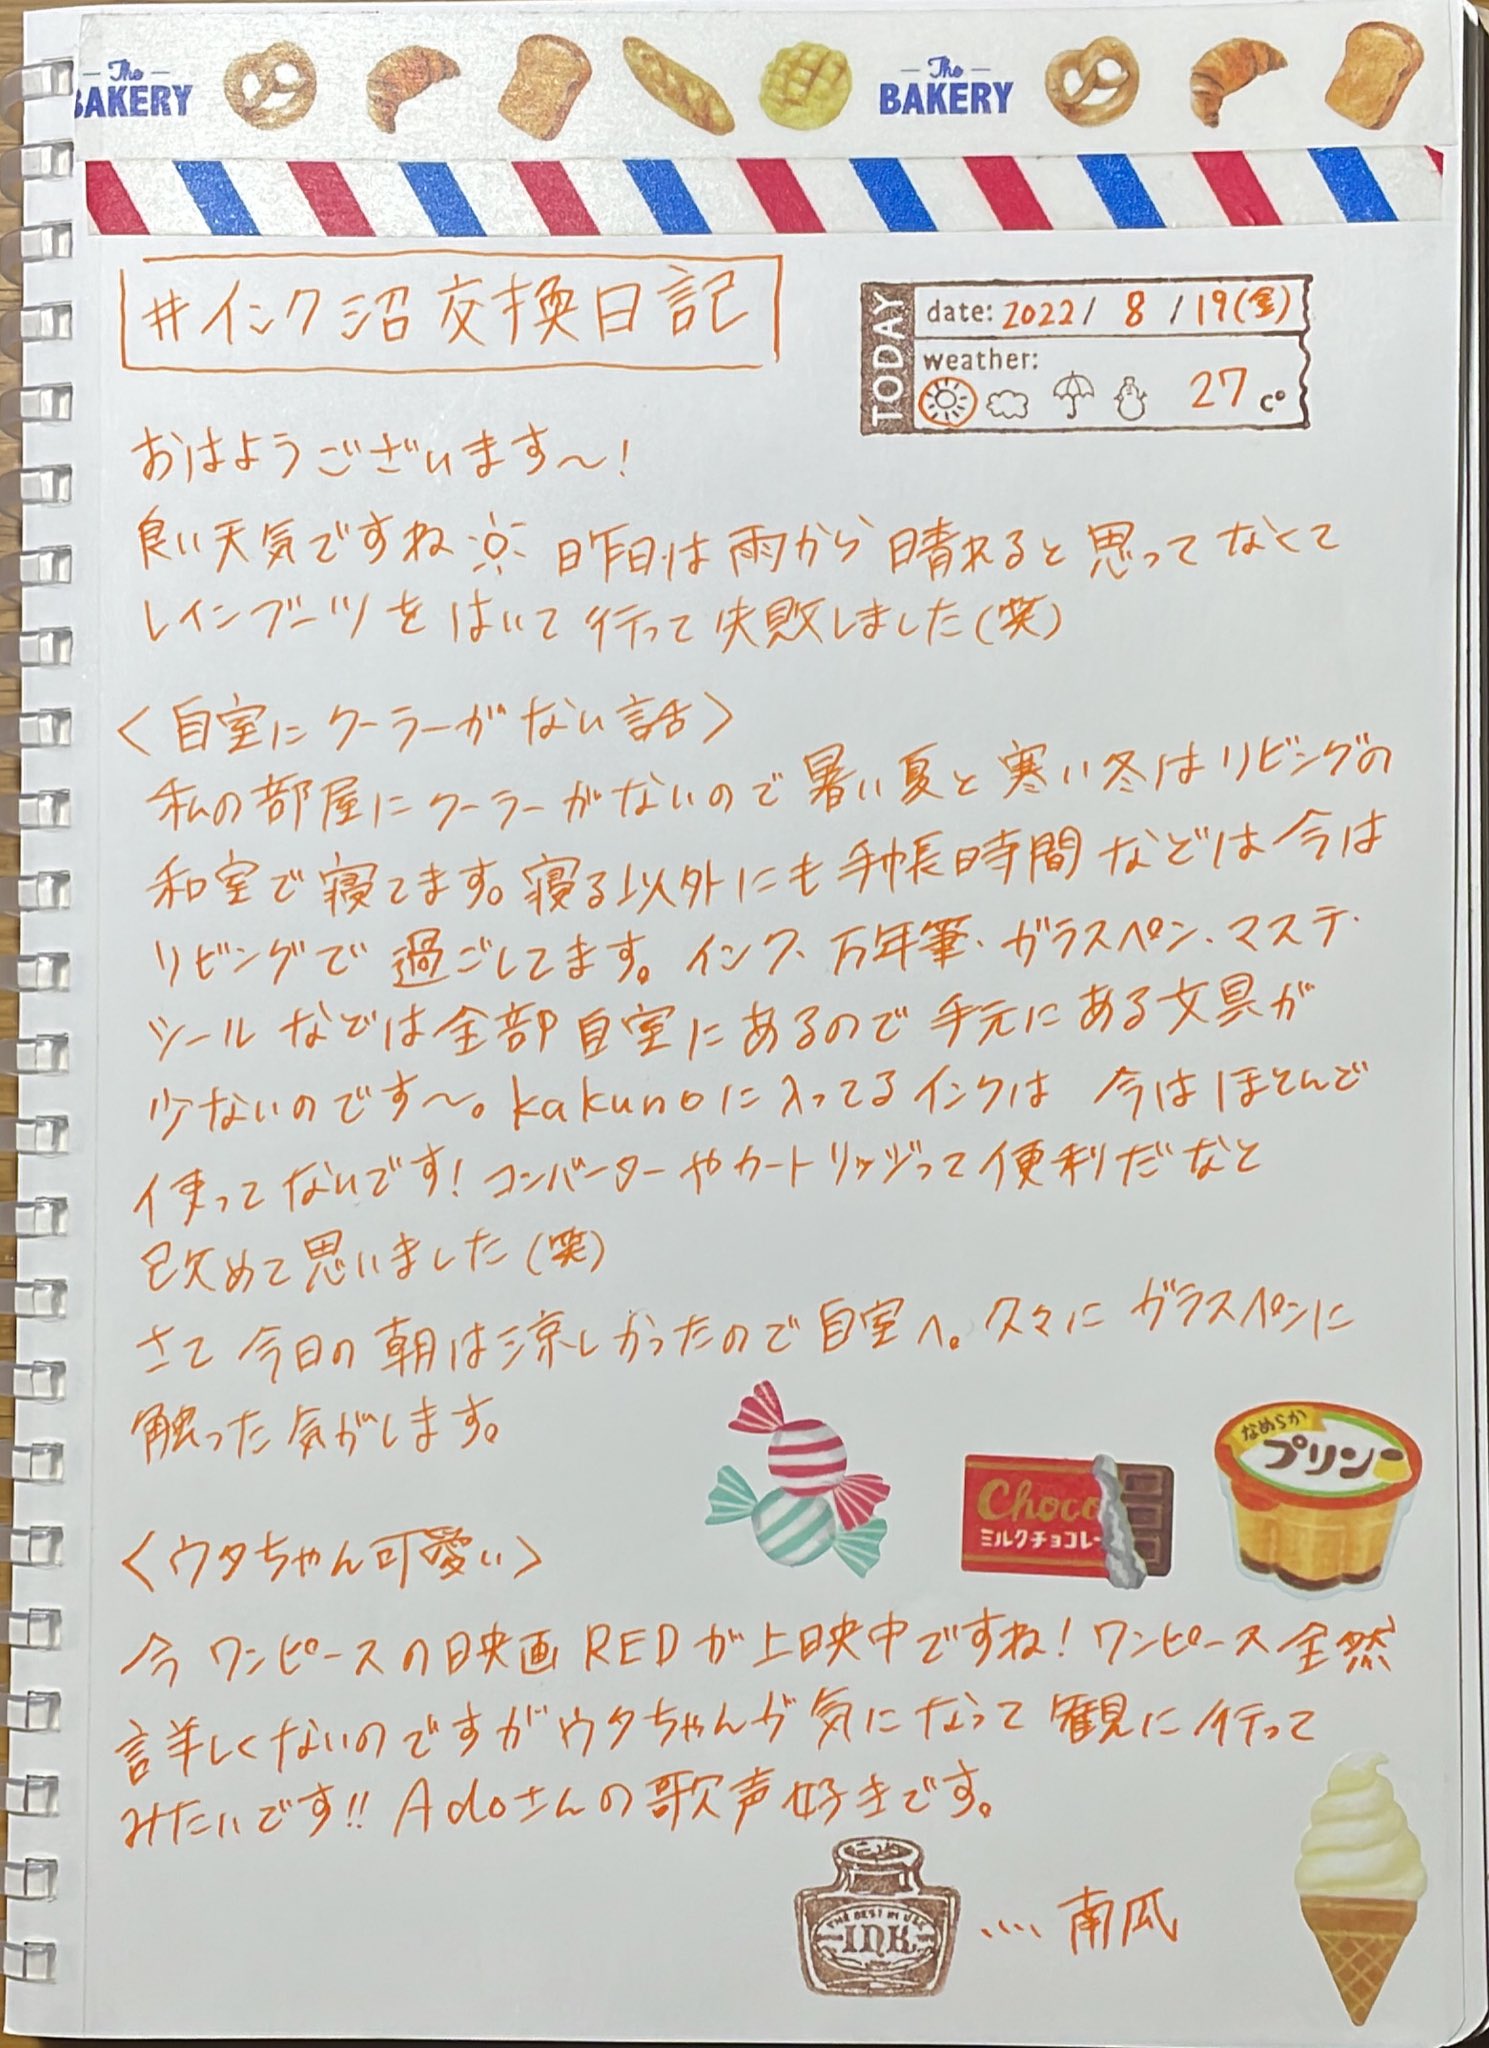 The BAKERY The BAKERY
#インク沼交換日記
TODAY
date: 2022/ 8 /19(金)
weather:
27 c°
おはようございます〜!
良い天気ですね 昨日は雨から晴れると思ってなくて
レインブーツをはいて行って失敗しました(笑)
〈自室にクーラーがない話〉
私の部屋にクーラーがないので暑い夏と寒い冬はリビングの
和室で寝てます。寝る以外にも手帳時間などは今は
リビングで過ごしてます。インク、万年筆、ガラスペン、マステ、
シールなどは全部自室にあるので手元にある文具が
少ないのです〜。kakunoに入ってるインクは 今はほとんど
使ってないです!コンバーターやカートリッジって便利だなと
改めて思いました(笑)
さて今日の朝は涼しかったので自室へ。久々にガラスペンに
触った気がします。
Choco
ミルクチョコレー
なめらか
プリン
〈ウタちゃん可愛い〉
今ワンピースの映画REDが上映中ですね!ワンピース全然
詳しくないのですがウタちゃんが気になって観に行って
みたいです!!Adoさんの歌声好きです。
THE BEST IN USE
INK
....南瓜